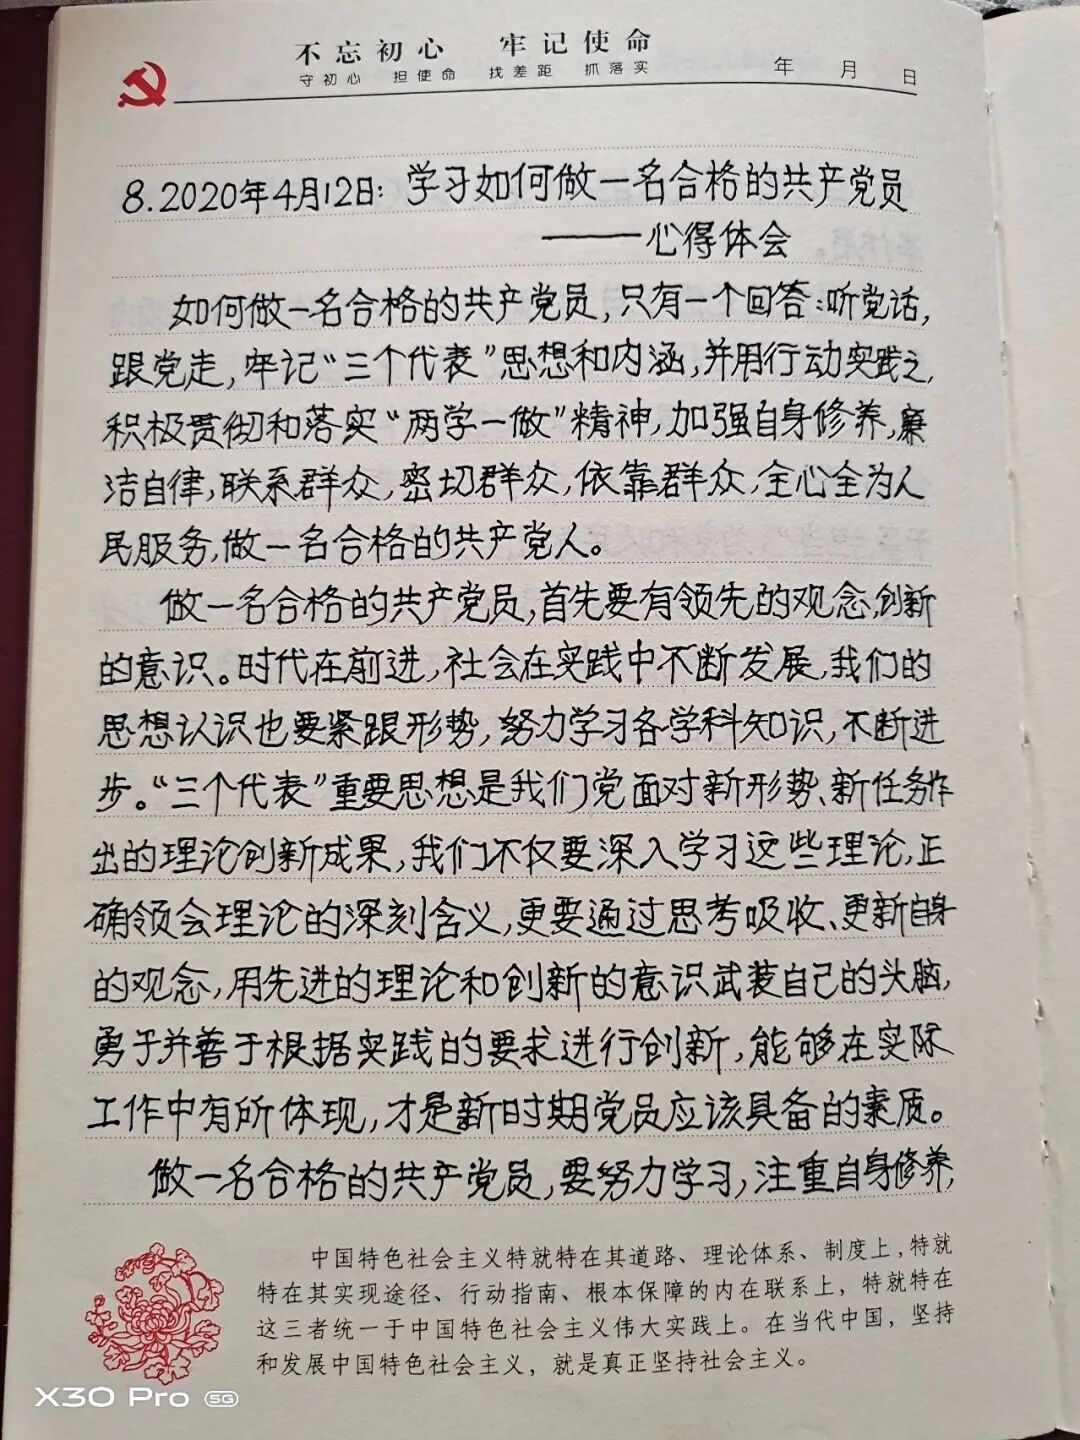 不忘初心 牢记使命
守初心 担使命 找差距 抓落实
年 月 日
8.2020年4月12日：学习如何做一名合格的共产党员
——心得体会
如何做一名合格的共产党员，只有一个回答：听党话，
跟党走，牢记“三个代表”思想和内涵，并用行动实践之，
积极贯彻和落实“两学一做”精神，加强自身修养，廉
洁自律，联系群众，密切群众，依靠群众，全心全为人
民服务，做一名合格的共产党人。
做一名合格的共产党员，首先要有领先的观念，创新
的意识。时代在前进，社会在实践中不断发展，我们的
思想认识也要紧跟形势，努力学习各学科知识，不断进
步。“三个代表”重要思想是我们党面对新形势、新任务作
出的理论创新成果，我们不仅要深入学习这些理论，正
确领会理论的深刻含义，更要通过思考吸收、更新自身
的观念，用先进的理论和创新的意识武装自己的头脑，
勇于并善于根据实践的要求进行创新，能够在实际
工作中有所体现，才是新时期党员应该具备的素质。
做一名合格的共产党员，要努力学习，注重自身修养，
中国特色社会主义特就特在其道路、理论体系、制度上，特就
特在其实现途径、行动指南、根本保障的内在联系上，特就特在
这三者统一于中国特色社会主义伟大实践上。在当代中国，坚持
和发展中国特色社会主义，就是真正坚持社会主义。
X30 Pro 5G